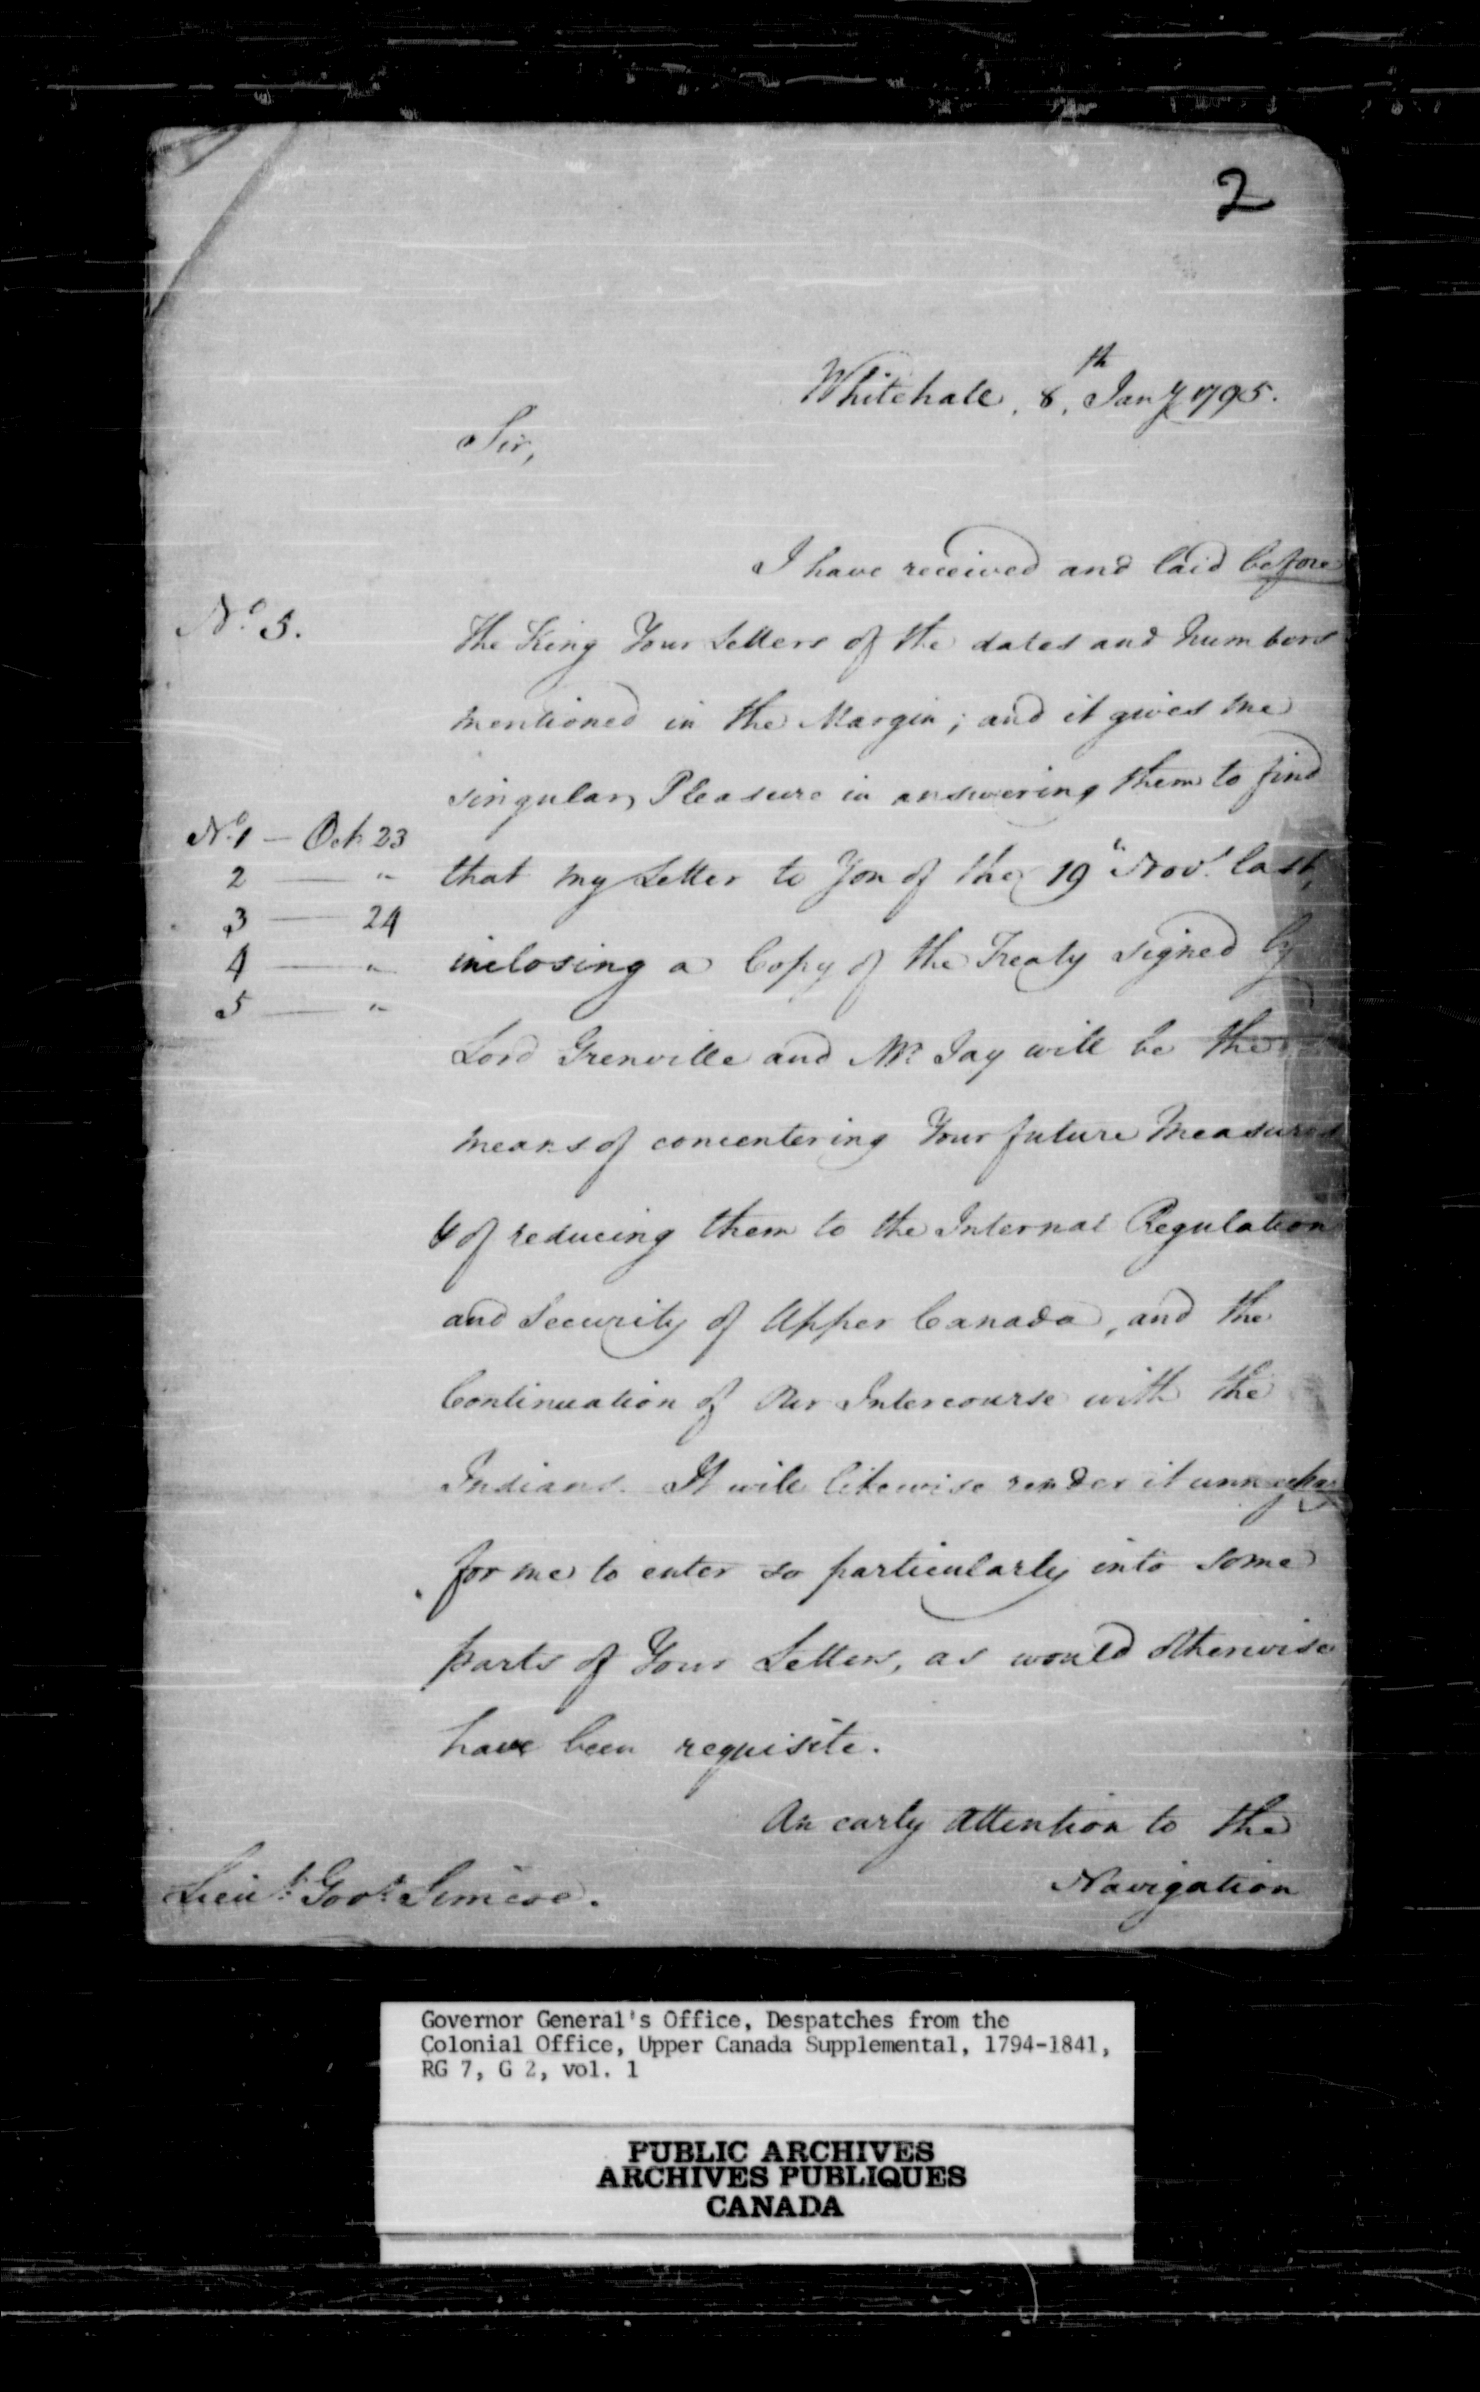 2
Whitehall, 8th, Jany 1795.
Sir,
I have received and laid before
No. 5.
the King Your Letters of the dates and Numbers
mentioned in the Margin; and it gives me
singular Pleasure in answering them to find
No. 1 — Oct. 23
2 — "
3 — 24
4 — "
5 — "
that my Letter to You of the 19th Novr. last,
inclosing a Copy of the Treaty signed by
Lord Grenville and Mr. Jay will be the
means of concentering Your future Measures
& of reducing them to the Internal Regulation
and Security of Upper Canada, and the
Continuation of Our Intercourse with the
Indians. It will likewise render it unnecessary
for me to enter so particularly into some
parts of Your Letters, as would otherwise
have been requisite.
An early attention to the
Navigation
Lieut. Govr. Simcoe.
Governor General's Office, Despatches from the
Colonial Office, Upper Canada Supplemental, 1794-1841,
RG 7, G 2, vol. 1
PUBLIC ARCHIVES
ARCHIVES PUBLIQUES
CANADA